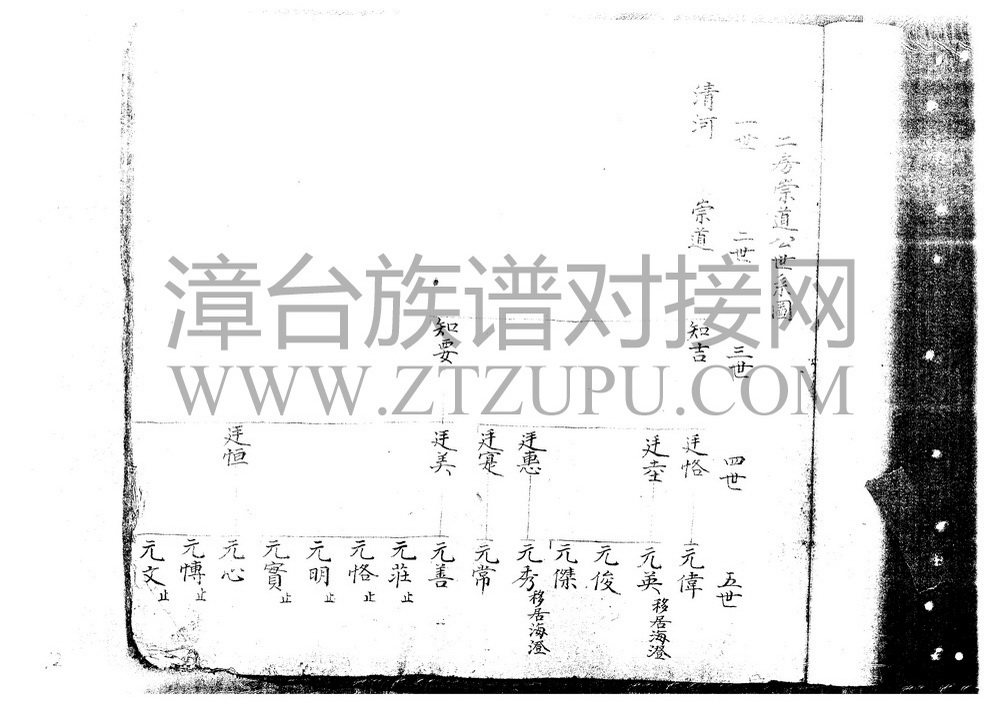 二房崇道公世系圖
一世
二世
三世
四世
五世
清河
崇道
知吉
知要
廷恪
廷惠
廷美
廷恒
元偉
元英移居海澄
元俊
元傑
元秀移居海澄
元常
元善
元莊止
元恪止
元明止
元實止
元心
元愽止
元文止
漳台族谱对接网
WWW.ZTZUPU.COM